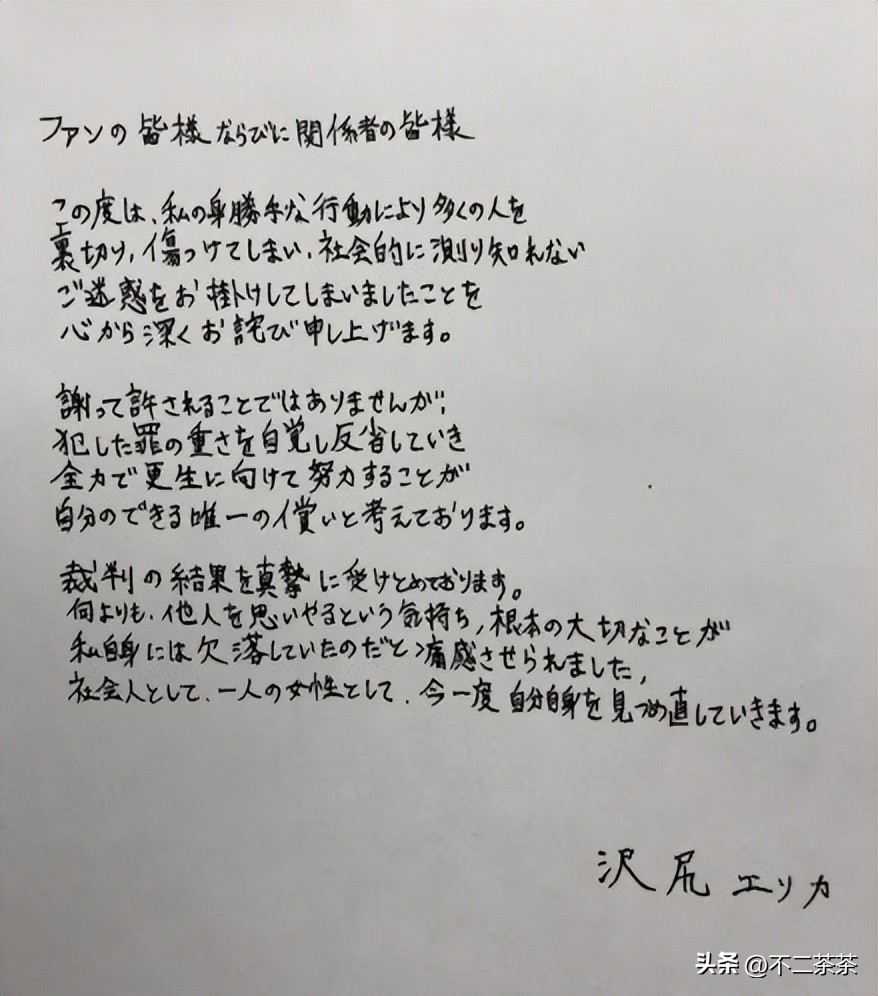 ファンの皆様ならびに関係者の皆様
この度は、私の身勝手な行動により多くの人を
裏切り、傷つけてしまい、社会的に測り知れない
ご迷惑をお掛けしてしまいましたことを
心から深くお詫び申し上げます。
謝って許されることではありませんが、
犯した罪の重さを自覚し反省していき
全力で更生に向けて努力することが
自分のできる唯一の償いと考えております。
裁判の結果を真摯に受けとめております。
何よりも、他人を思いやるという気持ち、根本の大切なことが
私自身には欠落していたのだと痛感させられました、
社会人として、一人の女性として、今一度自分自身を見つめ直していきます。
沢尻エリカ
头条 @不二茶茶